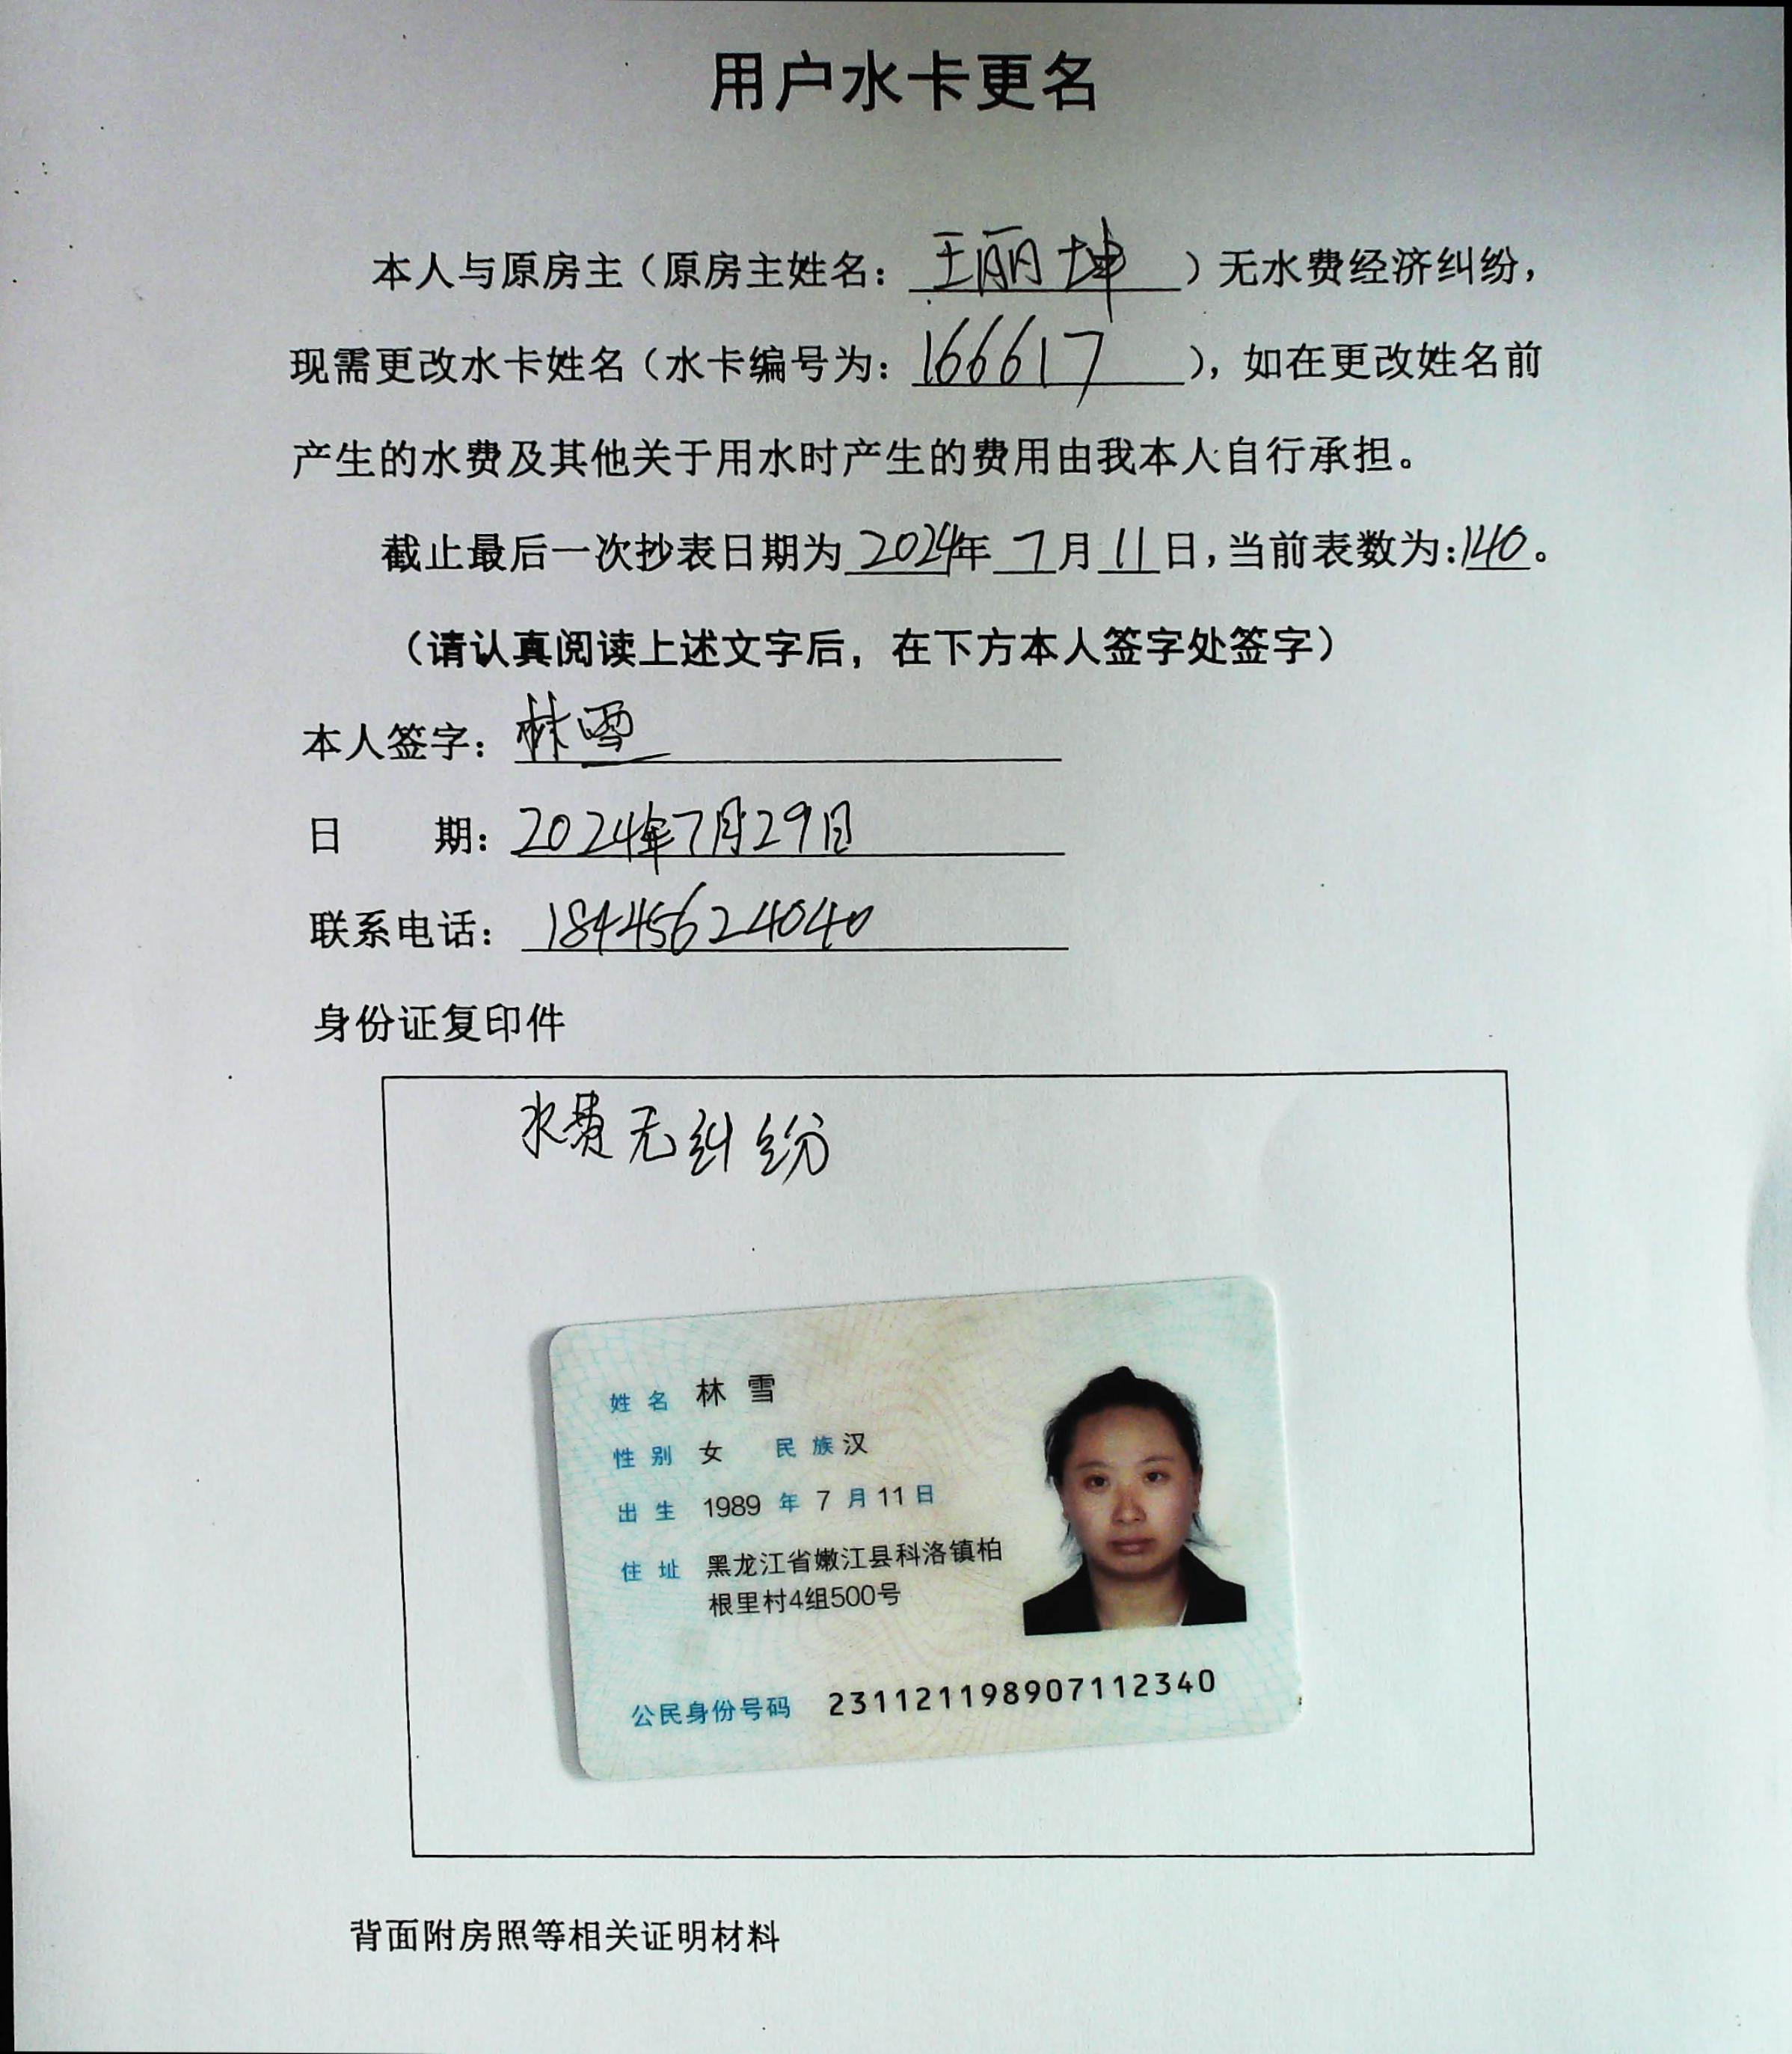 用户水卡更名
本人与原房主（原房主姓名：王丽坤）无水费经济纠纷，
现需更改水卡姓名（水卡编号为：166617），如在更改姓名前
产生的水费及其他关于用水时产生的费用由我本人自行承担。
截止最后一次抄表日期为2024年7月11日，当前表数为：140。
（请认真阅读上述文字后，在下方本人签字处签字）
本人签字：林雪
日 期：2024年7月29日
联系电话：18445624040
身份证复印件
水费无纠纷
姓名 林雪
性别 女 民族 汉
出生 1989 年 7 月 11 日
住址 黑龙江省嫩江县科洛镇柏
根里村4组500号
公民身份号码 231121198907112340
背面附房照等相关证明材料